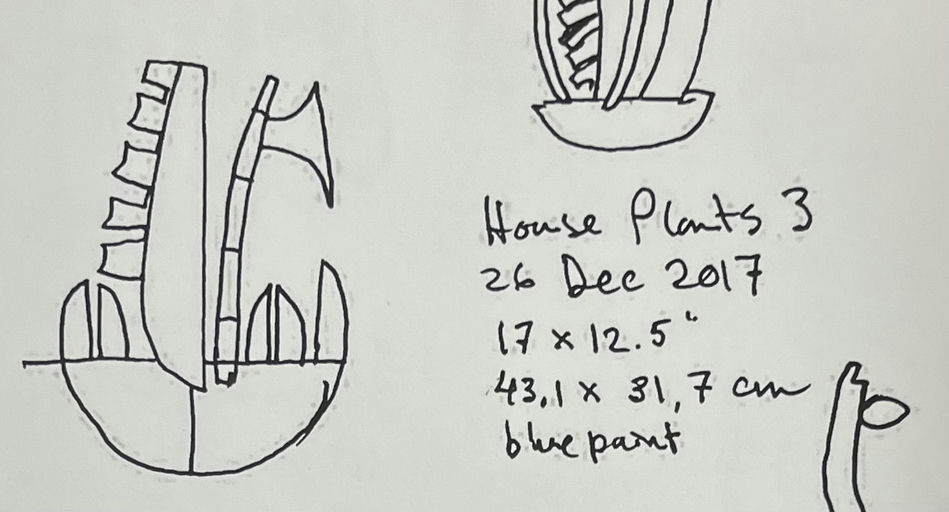 House Plants 3
26 Dec 2017
17 x 12.5"
43,1 x 31,7 cm
blue paint